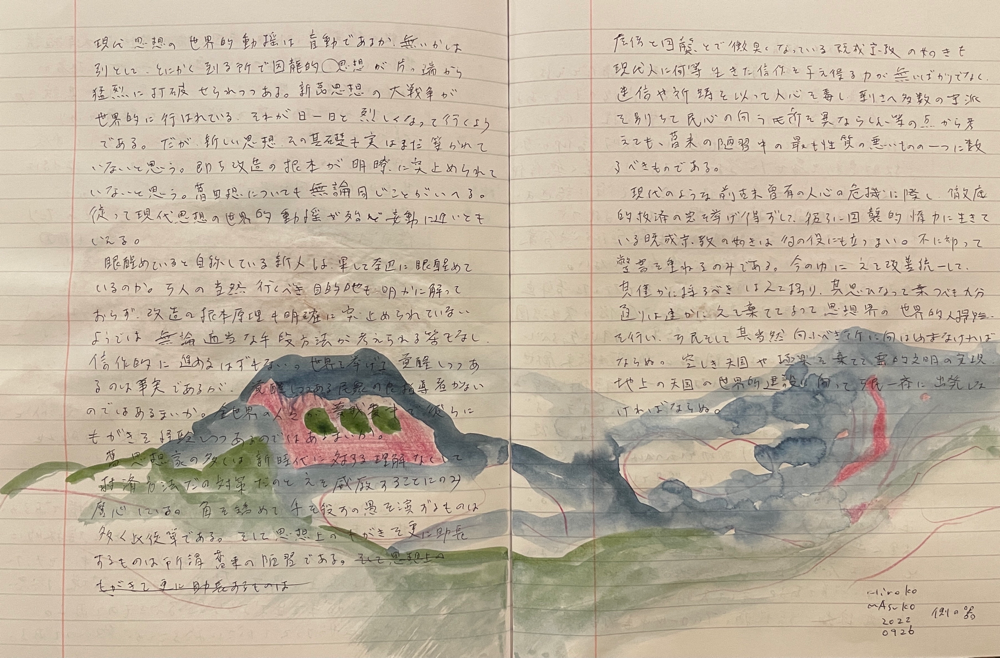 現代思想の世界的動揺は盲動であるか無いかは
別として、とにかく到る所で因襲的思想が片っ端から
猛烈に打破せられつつある。新旧思想の大戦争が
世界的に行はれている。それが日一日と烈しくなって行くよう
である。だが新しい思想、その基礎も実はまだ定められて
いないと思う。即ち改造の根本が明瞭に突止められて
いないと思う。旧思想についても無論同じことがいへる。
従って現代思想の世界的動揺が殆んど妄動に近いとも
いえる。
眼醒めていると自称している新人は、果して奈辺に眼醒めて
いるのか。万人の当然行くべき目的地も明かに解って
おらず、改造の根本原理も明確に突止められていない
ようでは無論適当な手段方法が考えられる筈もなし
信仰的に進めるはずもない。世界を挙げて覚醒しつつあ
るのは事実であるが、覚醒しつつある民衆の指導者がない
のではあるまいか。全世界の人心 徒らに
もがきを経験しつつあるのではあるまいか。
旧思想家の多くは新時代に対する理解なくして
救済方法だの対策だのと
腐心している。角を矯めて牛を殺すの愚を演ずるものは
多く此後等である。そして思想上のもがきを更に助長
するものは所謂旧来の陋習である。そして思想上の
もがきを更に助長するものは
虚偽と因襲とで微臭くなっている既成宗教の如きも
現代人に何等生きた信仰を与え得る力が無いばかりでなく、
迷信や祈祷を以って人心を毒し、剰さへ多数の宗派
を別ちて民心の向う所を異ならしむ等の点から考
えても、旧来の陋習中の最も性質の悪いものの一つに数
るべきものである。
現代のような前古未曾有の人心の危機に際し、徹底
的救済の実を挙げ得ずして、徒らに因襲的惰力に生きて
いる既成宗教の如きは何の役にも立つまい。
害毒を重ねるのみである。今の中に之を改善統一して、
真価が採るべきは之を採り、
之を棄ててよって思想界の世界的大掃除
を行い、万民をして其当然向ふべき所に向はしめなければ
ならぬ。空しき天国や極楽を棄てて、
地上の天国の世界的建設に向って 一斉に出発しな
ければならぬ。
Hiroko
mAsuko
2022
0926